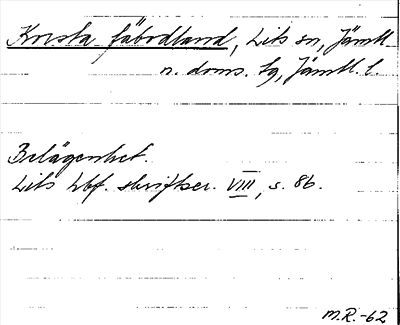 Korsta fäbodland, Lits sn, Jämtl.
n. doms. tg, Jämtl. l.
Belägenhet.
Lits hbf. skriftser. VIII, s. 86.
M.R.-62